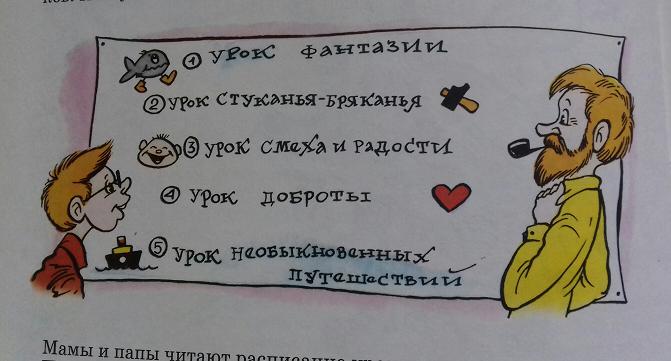 1 урок фантазии
2 урок стуканья-бряканья
3 урок смеха и радости
4 урок доброты
5 урок необыкновенных
путешествий
Мамы и папы читают расписание